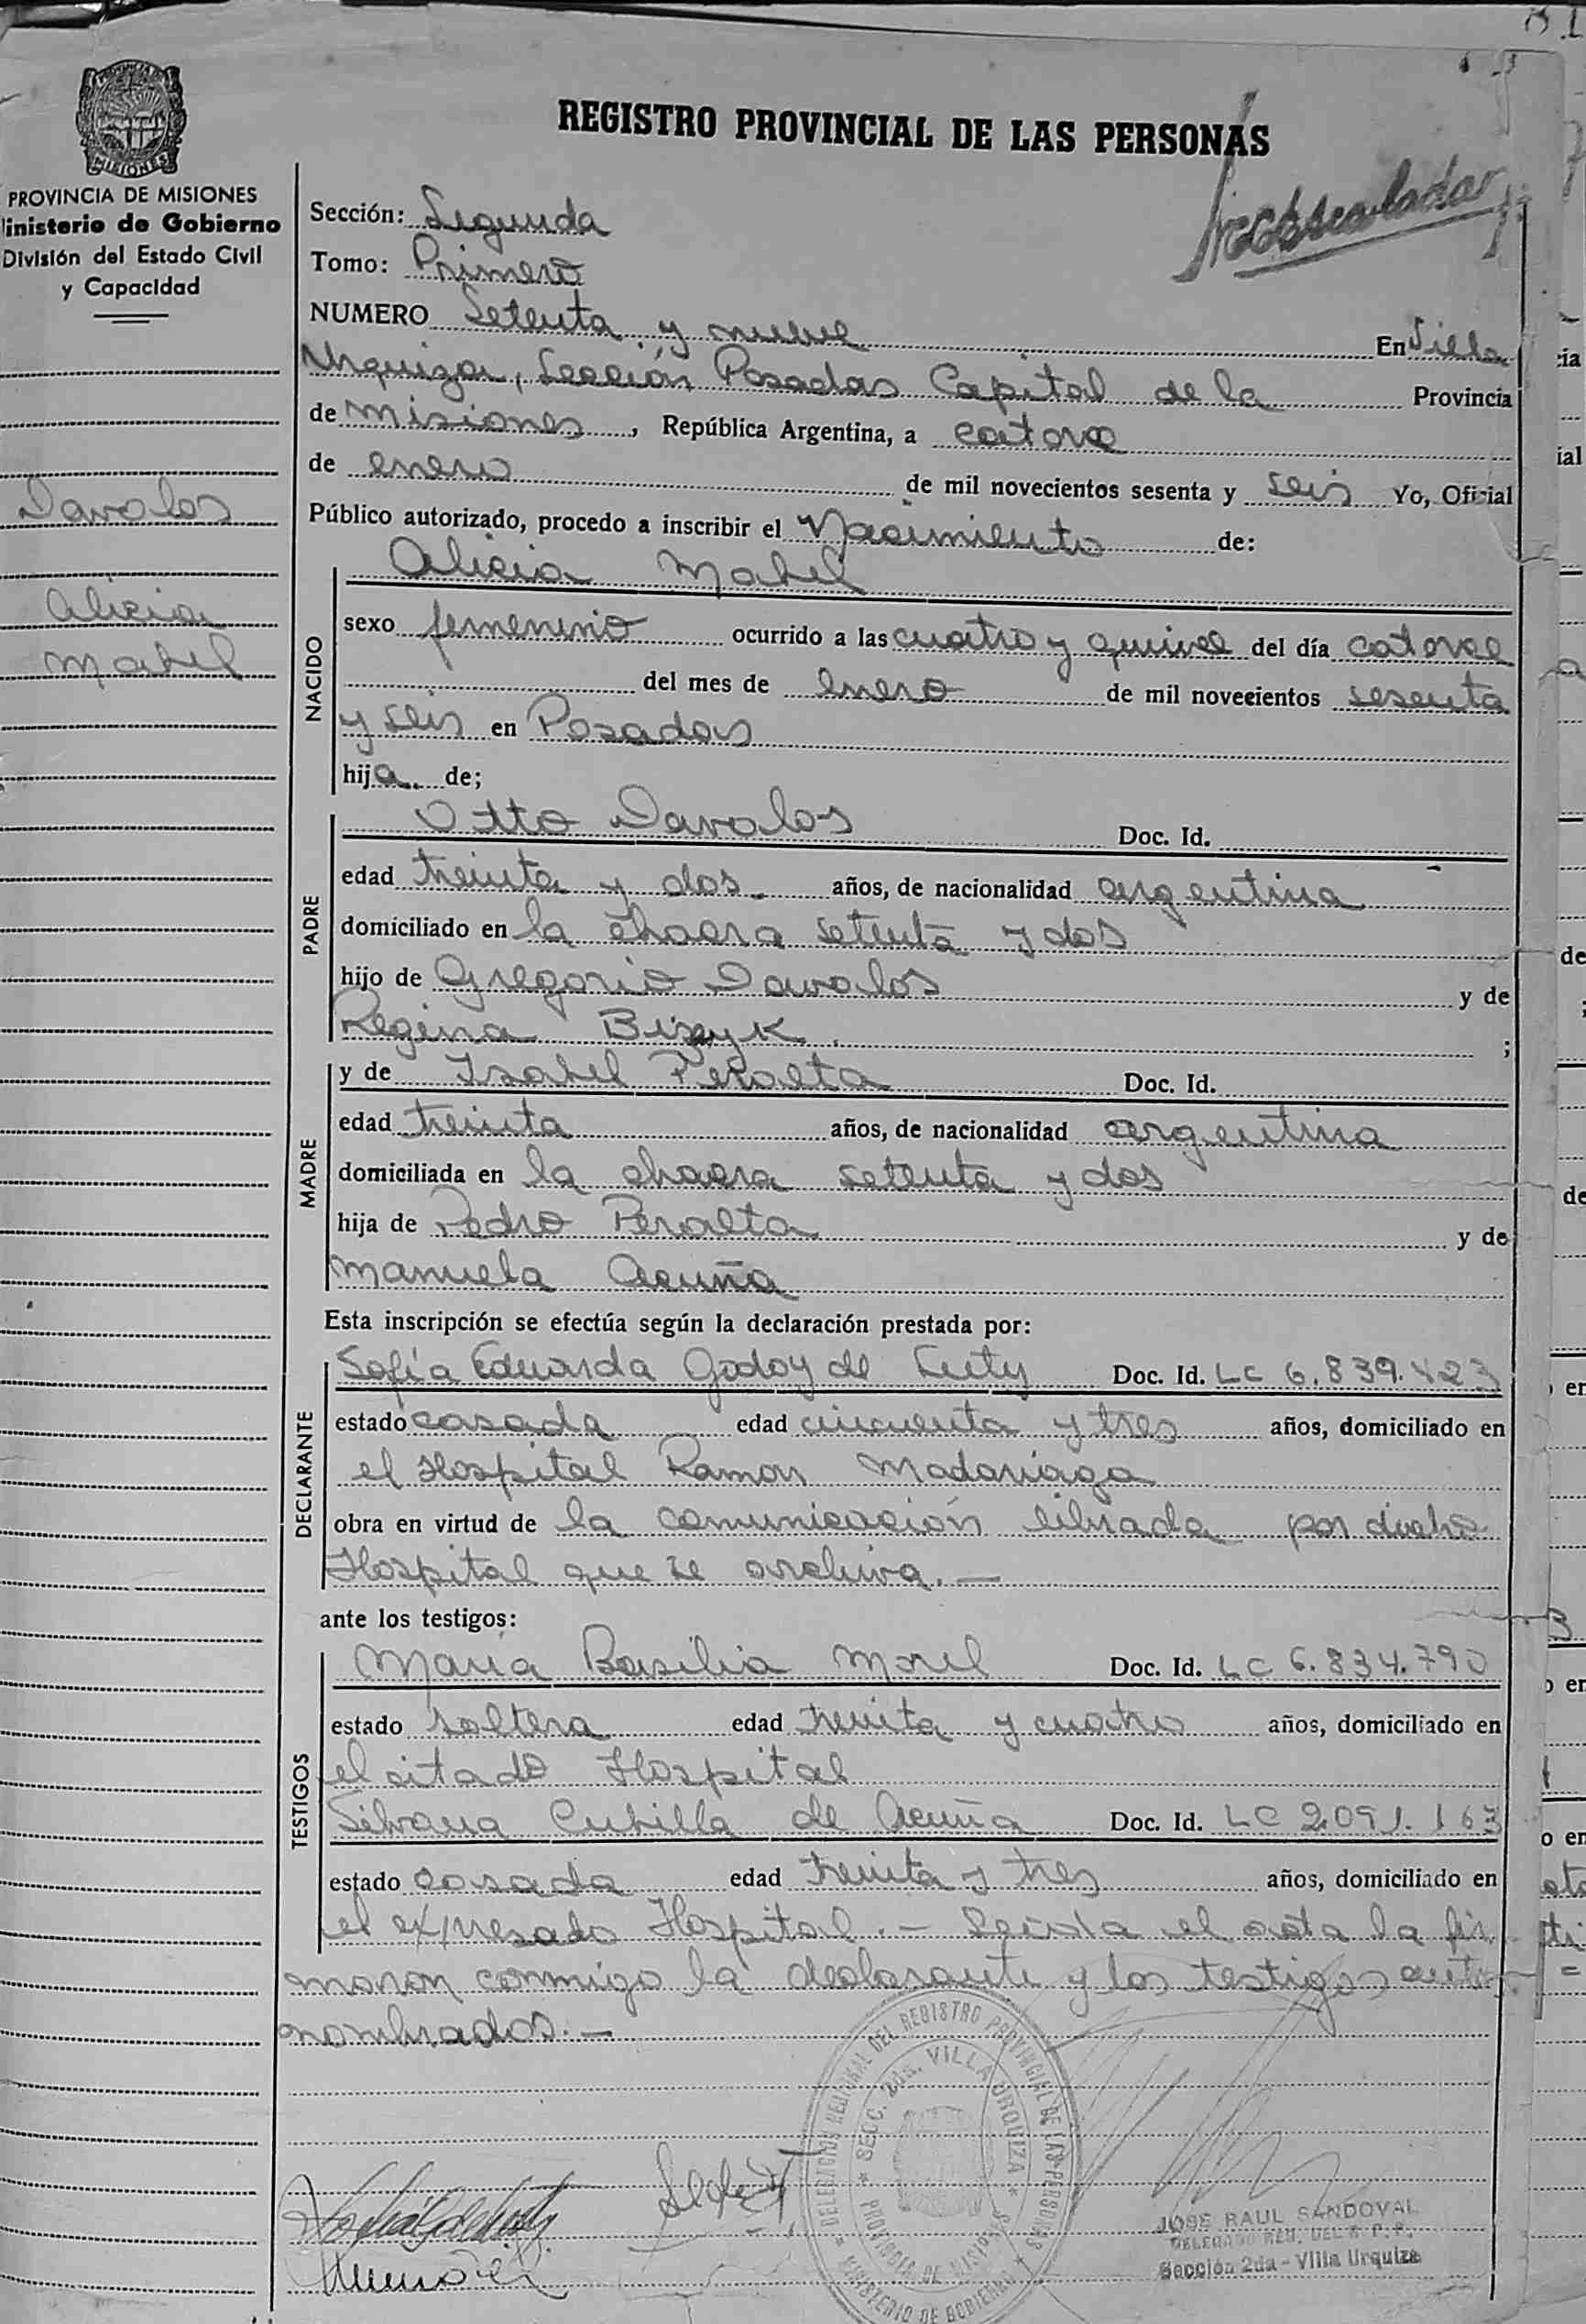 REGISTRO PROVINCIAL DE LAS PERSONAS
PROVINCIA DE MISIONES
Ministerio de Gobierno
División del Estado Civil
y Capacidad
Sección: Segunda
Tomo: Primero
NUMERO Setenta y nueve En Villa
Urquiza, Sección Posadas Capital de la Provincia
de Misiones, República Argentina, a catorce
de enero de mil novecientos sesenta y seis Yo, Oficial
Público autorizado, procedo a inscribir el Nacimiento de:
Davalos
Alicia
Mabel
NACIDO
Alicia Mabel
sexo femenino ocurrido a las cuatro y quince del día catorce
del mes de enero de mil novecientos sesenta
y seis en Posadas
hija de;
PADRE
Otto Davalos Doc. Id.
edad treinta y dos años, de nacionalidad argentina
domiciliado en la chacra setenta y dos
hijo de Gregorio Davalos y de
Regina ;
MADRE
y de Isabel Peralta Doc. Id.
edad treinta años, de nacionalidad argentina
domiciliada en la chacra setenta y dos
hija de Pedro Peralta y de
Manuela Acuña
Esta inscripción se efectúa según la declaración prestada por:
DECLARANTE
Sofía Eduarda Godoy de Doc. Id. LC 6.839.423
estado casada edad cincuenta y tres años, domiciliado en
el Hospital Ramon Madariaga
obra en virtud de la comunicación librada por dicho
Hospital que se archiva.—
ante los testigos:
TESTIGOS
Maria Basilia Morel Doc. Id. LC 6.834.790
estado soltera edad treinta y cuatro años, domiciliado en
el citado Hospital
Silvana Cubilla de Acuña Doc. Id. LC 2.091.163
estado casada edad treinta y tres años, domiciliado en
el expresado Hospital.— Leida el acta la fir
maron conmigo la declarante y los testigos ante
nombrados.—
DELEGACION REGIONAL DEL REGISTRO PROVINCIAL DE LAS PERSONAS
SECC. 2da. VILLA URQUIZA
PROVINCIA DE MISIONES
MINISTERIO DE GOBIERNO
JOSE RAUL SANDOVAL
DELEGADO REG. DEL R. P. P.
Sección 2da - Villa Urquiza